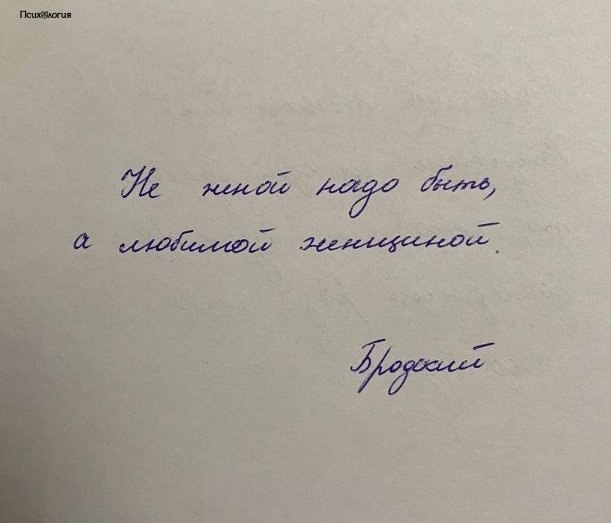 Психология
Не женой надо быть,
а любимой женщиной.
Бродский